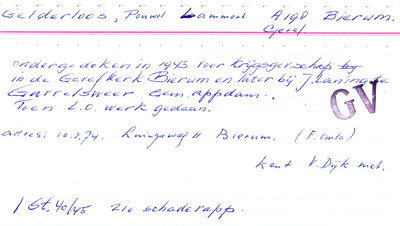 Gelderloos, Pouwel Lammert A198 Bierum.
Ger.
ondergedoken in 1943 voor krijgsgev.schap
in de Geref kerk Bierum en later bij J. Laning te
Garrelsweer Gem. appdam.
Toen L.O. werk gedaan.
GV
adres: 10.2.74. Luingaweg 11 Bierum. (F. Omta)
kent V. Dijk niet.
St. 40/45 zie schaderapp.